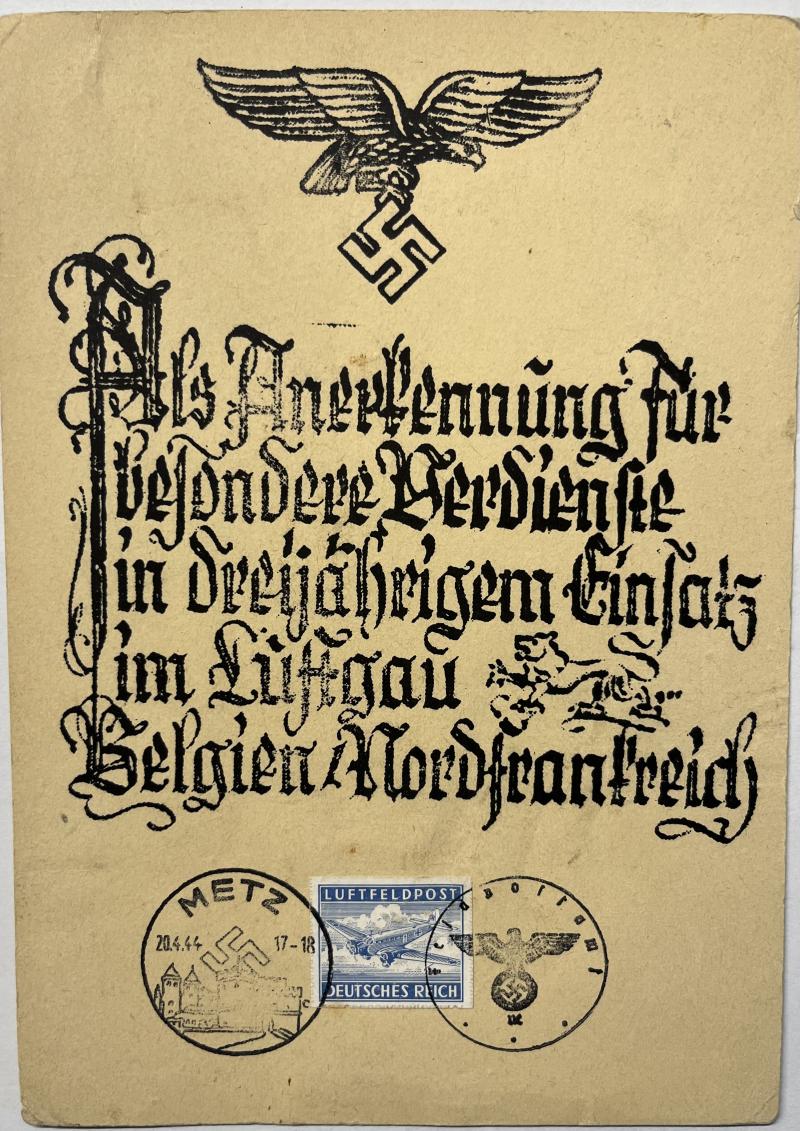 Als Anerkennung für
besondere Verdienste
in dreijährigem Einsatz
im Luftgau
Belgien/Nordfrankreich
METZ
20.4.44 17-18
c
LUFTFELDPOST
DEUTSCHES REICH
Feldpostamt